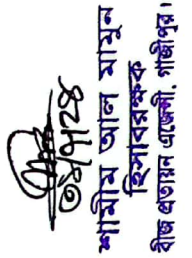 ০৪/৭/২৪
শামীম আল মামুন
হিসাবরক্ষক
বীজ প্রত্যয়ন এজেন্সী, গাজীপুর।